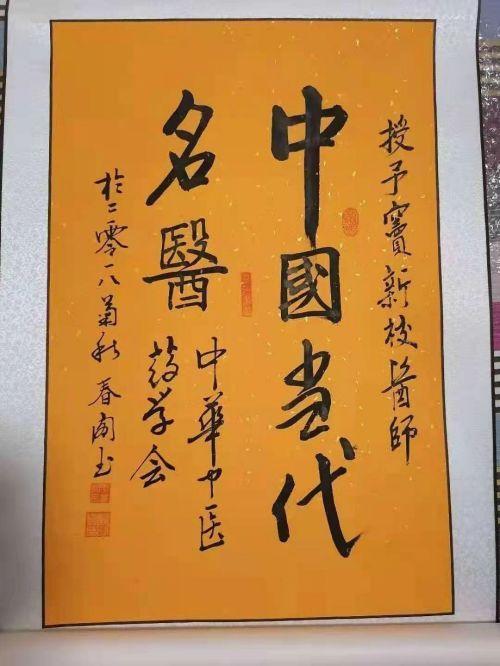 授予竇新校醫師
中國当代
名醫
中華中医
药学会
於二零一八菊秋 春雨玉